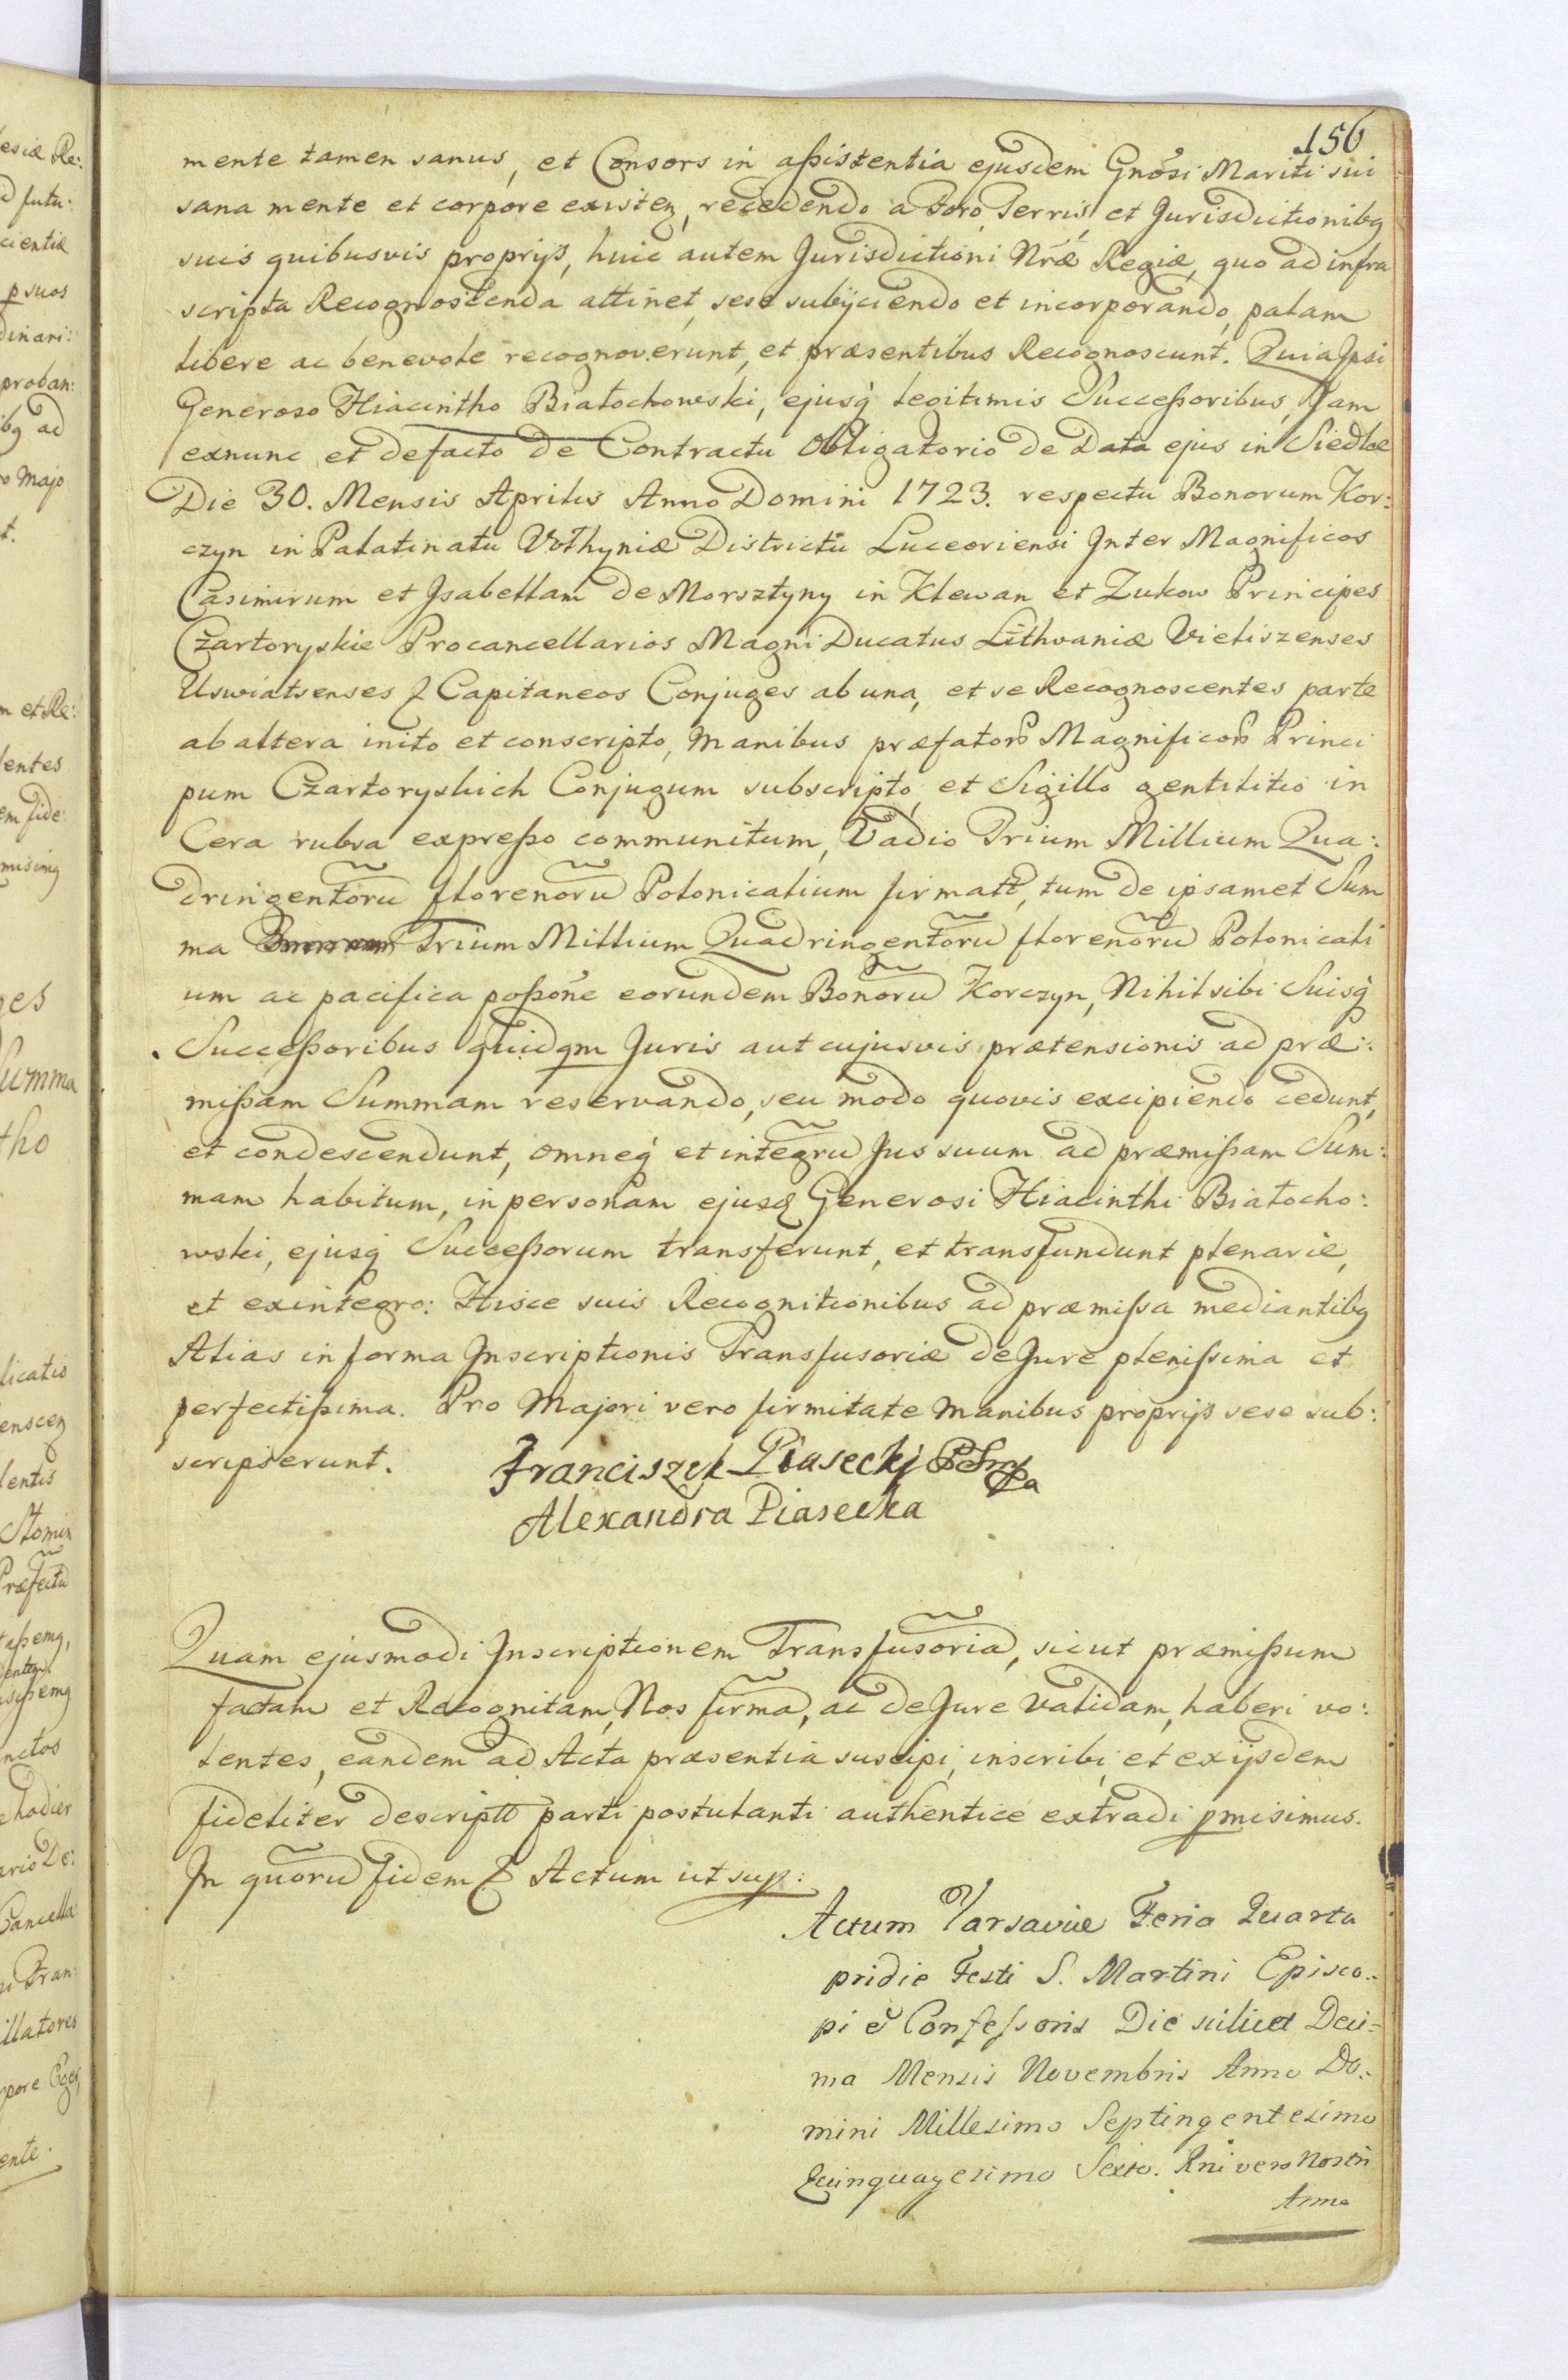 156
mente tamen sanus, et Consors in aßistentia ejusdem Gnosi Mariti sui
sana mente et corpore existen, recedendo a Foro, Terris, et Jurisdictionibq
suis quibusvis proprijs, huic autem Jurisdictioni Nræ Regiæ, quo ad infra
scripta Recognoscenda attinet, sese subijciendo et incorporando, palam
libere ac benevole recognoverunt, et præsentibus Recognoscunt. Quia Ipsi
Generoso Hiacintho Białochowski, ejusq legitimis Succeßoribus, Jam
exnunc et defacto de Contractu Obligatorio de Data ejus in Siedlce
Die 30. Mensis Aprilis Anno Domini 1723. respectu Bonorum Kor:
czyn in Palatinatu Volhyniæ Districtu Luceoriensi Inter Magnificos
Casimirum et Isabellam de Morsztyny in Klewan et Zukow Principes
Czartoryskie Procancellarios Magni Ducatus Lithvaniæ Vieliszenses
Uswiatsenses & Capitaneos Conjuges ab una, et se Recognoscentes parte
ab altera inito et conscripto, Manibus præfator Magnificor Princi
pum Czartoryskich Conjugum subscripto, et Sigillo gentilitio in
Cera rubra expreßo communitum, Vadio Trium Millium Qua:
dringentorū florenorū Polonicalium firmatt, tum de ipsamet Sum
ma Trium Millium Quadringentorū florenorū Polonicali
um ac pacifica poßone eorundem Bonorū Korczyn, Nihil sibi Suisq
Succeßoribus quidqm Juris aut cujusvis prætensionis ad præ:
mißam Summam reservando, seu modo quovis excipiendo cedunt,
et condescendunt, omneq et integrū Jus suum ad præmißam Sum:
mam habitum, in personam ejusd Generosi Hiacinthi Białocho:
wski, ejusq Succeßorum transferunt, et transfundunt plenarie,
et exintegro: Hisce suis Recognitionibus ad præmissa mediantibq
Alias in forma Inscriptionis Transfusoriæ de Jure plenissima et
perfectißima. Pro Majori vero firmitate Manibus proprijs sese sub:
scripserunt. Franciszek Piasecki
Alexandra Piasecka
Quam ejusmodi Inscriptionem Transfusoriā, sicut præmißum
factam et Recognitam, Nos firmā, ac de Jure Validam, haberi vo:
lentes, eandem ad Acta præsentia suscipi, inscribi, et exijsdem
fideliter descriptt parti postulanti authentice extradi pmisimus.
In quorū fidem & Actum ut sup:
Actum Varsaviæ Feria Quarta
pridie Festi S. Martini Episco:
pi & Confessoris Die scilicet Deci=
ma Mensis Novembris Anno Do:
mini Millesimo Septingentesimo
Quinquagesimo Sexto. Rni vero Nostri
Anno